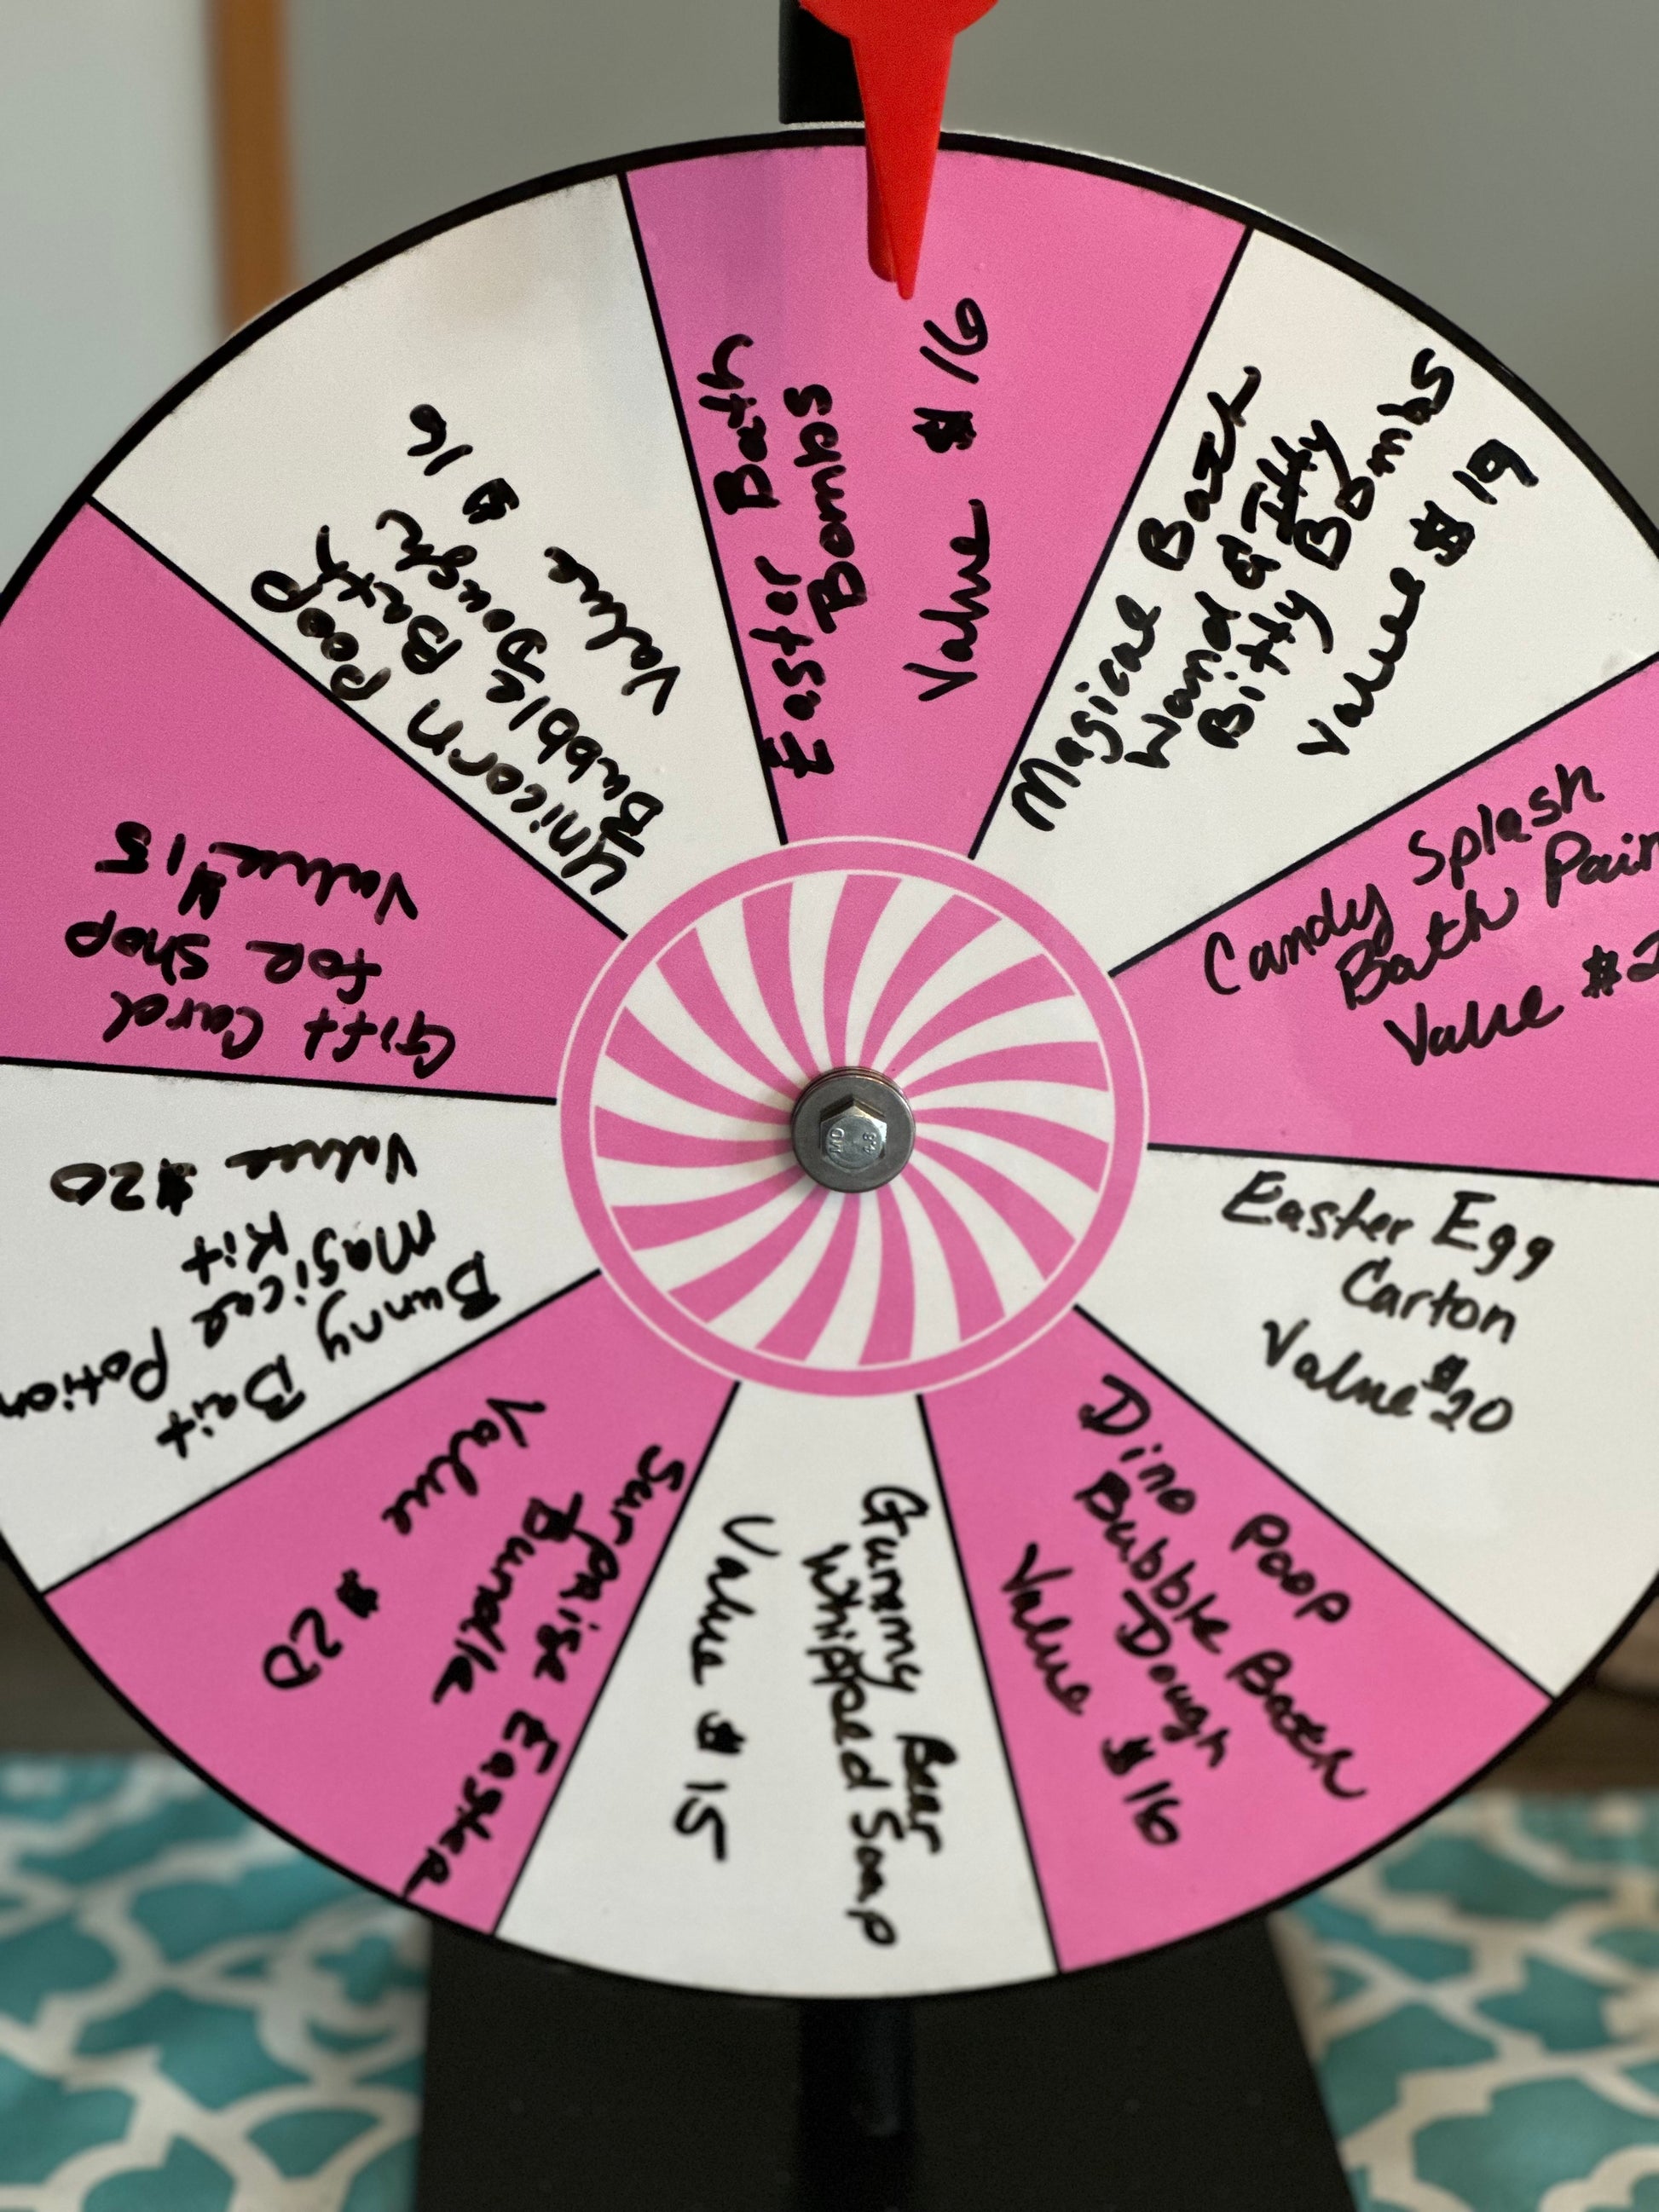 Easter Bath
Bombs
Value $16
Magical Bath
Wand & Itty
Bitty Bombs
Value $19
Candy Splash
Bath
Value
Easter Egg
Carton
Value $20
Dino Poop
Bubble Bath
Dough
Value $16
Gummy Bear
Whipped Soap
Value $15
Surprise Easter
Bundle
Value $20
Bunny Bait
Magical Potion
Kit
Value $20
Gift Card
for Shop
Value $15
Unicorn Poop
Bubble Bath
Dough
Value $16